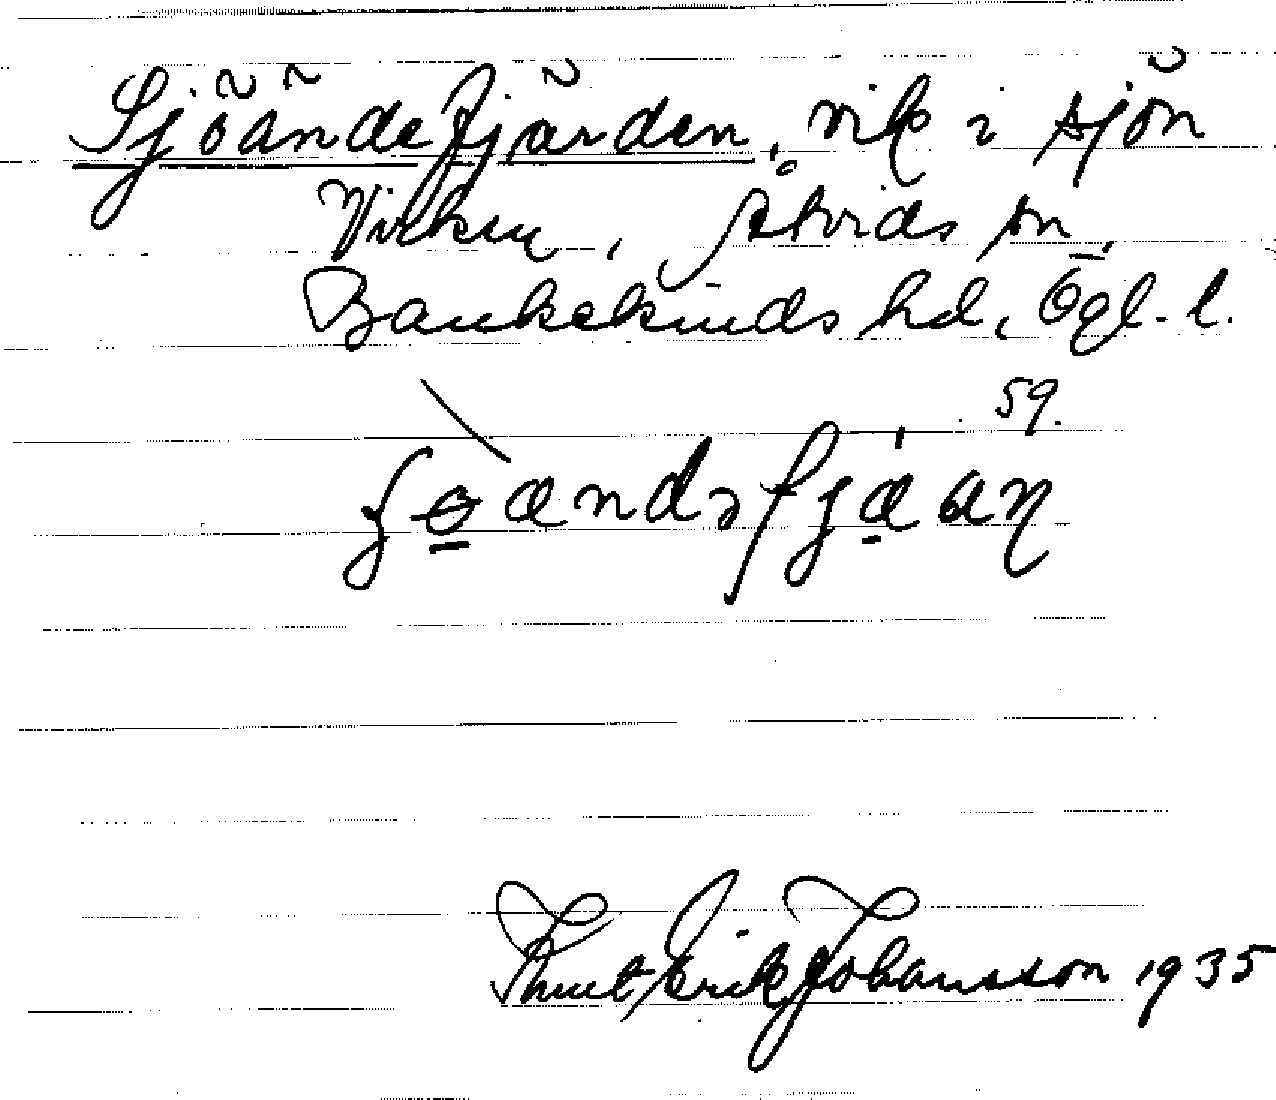 Sjöändefjärden, vik i sjön
Virken, Åtvids sn,
Bankekinds hd, Ögl. l.
59.
Knut Erik Johansson 1935